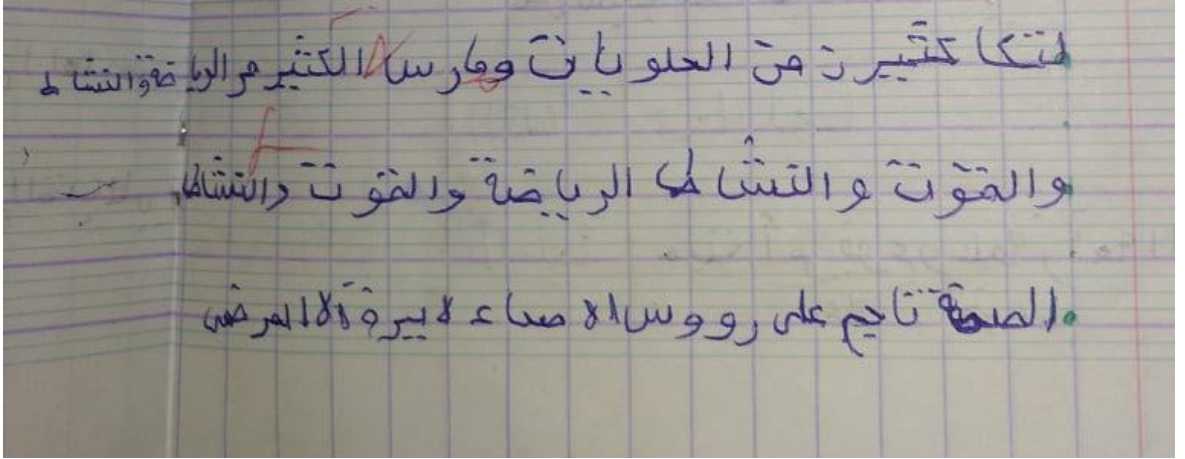 كثيرن من الحلويات ومارس الكثير من الرياضة والنشاط
والقوت والنشاط الرياضة والقوت والنشاط
الصحة تاجم على رووس الاصاء لا يرة الا المرضى